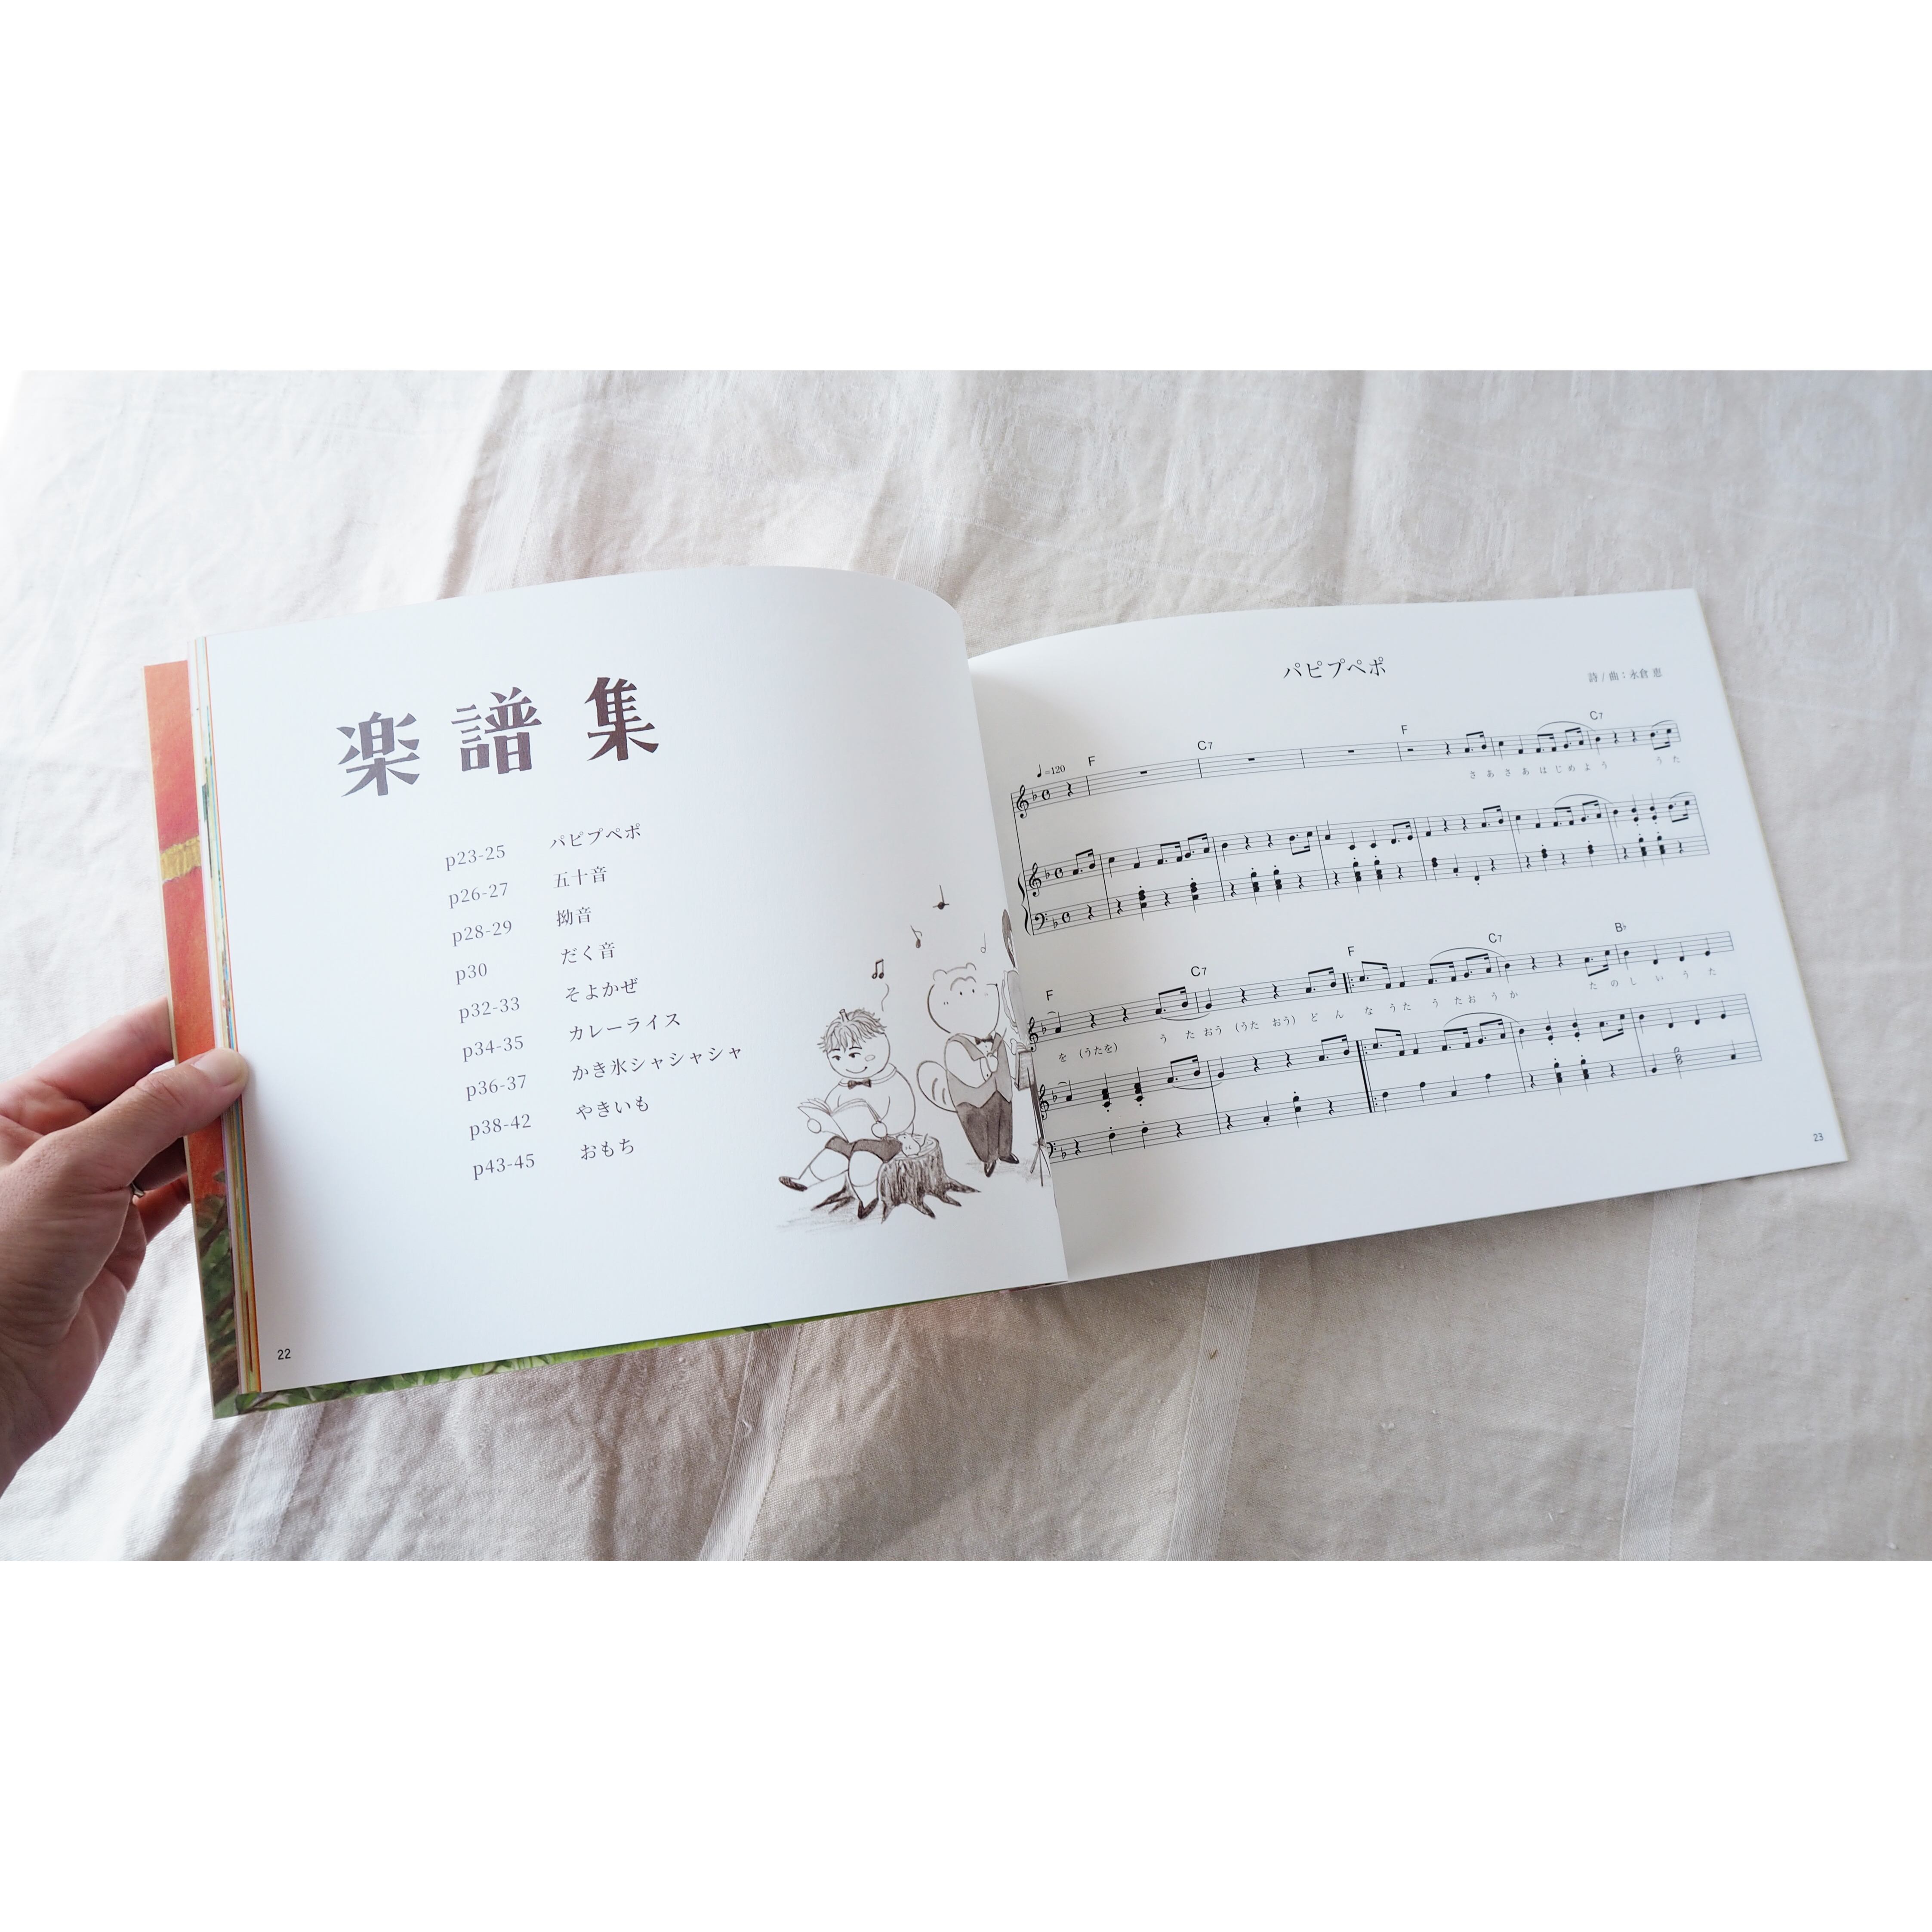 楽譜集
p23-25 パピプペポ
p26-27 五十音
p28-29 拗音
p30 だく音
p32-33 そよかぜ
p34-35 カレーライス
p36-37 かき氷シャシャシャ
p38-42 やきいも
p43-45 おもち
22
パピプペポ
詩 / 曲：永倉 恵
♩=120 F C7 F C7
さ あ さ あ は じ め よ う う た
F C7 F C7 B♭
を (うたを) う た おう (うた おう) ど ん な う た う た お う か た の し い う た
23